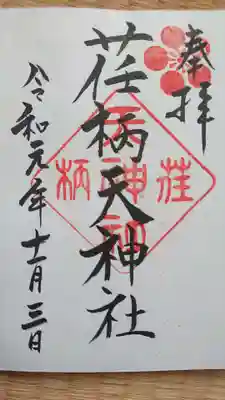 奉拝
荏柄天神社
令和元年十一月三日
荏柄